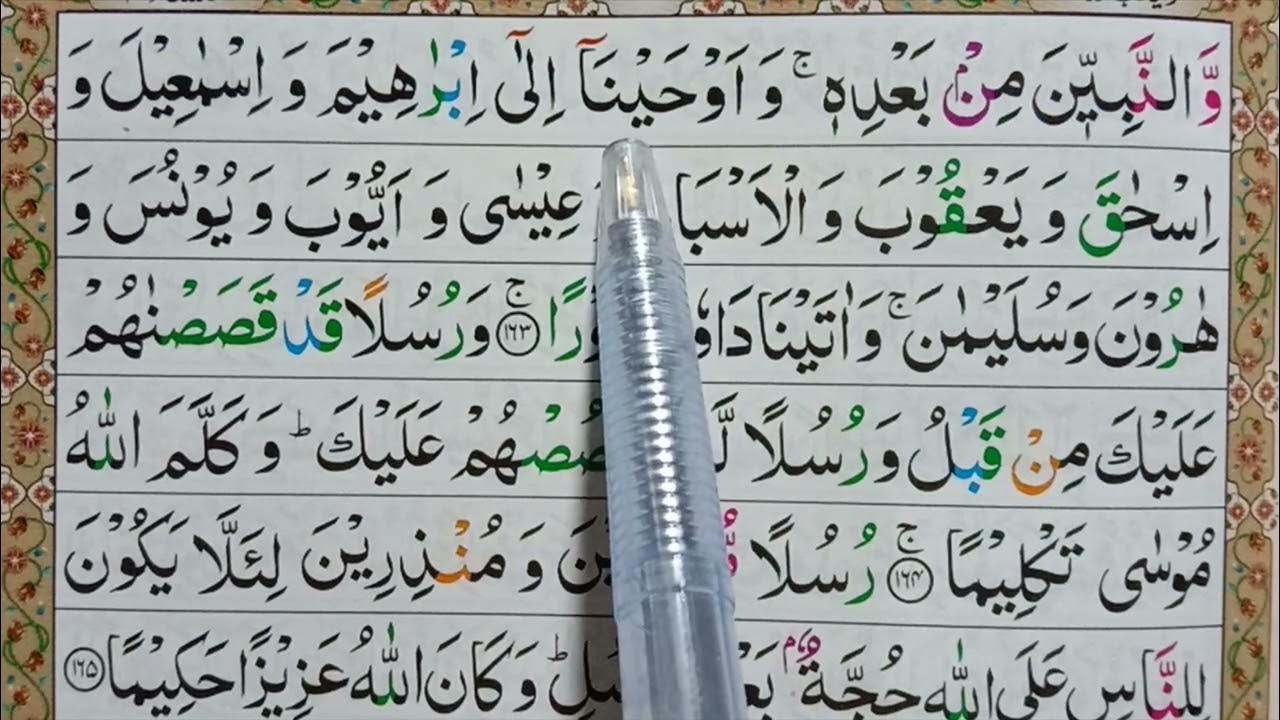 وَّ النَّبِيّٖنَ مِنْۢ بَعْدِهٖ ۚ وَ اَوْحَيْنَاۤ اِلٰۤى اِبْرٰهِيْمَ وَ اِسْمٰعِيْلَ وَ
اِسْحٰقَ وَ يَعْقُوْبَ وَ الْاَسْبَا عِيْسٰى وَ اَيُّوْبَ وَ يُوْنُسَ وَ
هٰرُوْنَ وَ سُلَيْمٰنَ ۚ وَ اٰتَيْنَا دَاوٗ رًا ۚ﴿۱۶۳﴾ وَ رُسُلًا قَدْ قَصَصْنٰهُمْ
عَلَيْكَ مِنْ قَبْلُ وَ رُسُلًا لَّ صُصْهُمْ عَلَيْكَ ؕ وَ كَلَّمَ اللّٰهُ
مُوْسٰى تَكْلِيْمًا ۚ﴿۱۶۴﴾ رُسُلًا مُّ يْنَ وَ مُنْذِرِيْنَ لِئَلَّا يَكُوْنَ
لِلنَّاسِ عَلَى اللّٰهِ حُجَّةٌۢ بَعْ سُلِ ؕ وَ كَانَ اللّٰهُ عَزِيْزًا حَكِيْمًا ﴿۱۶۵﴾